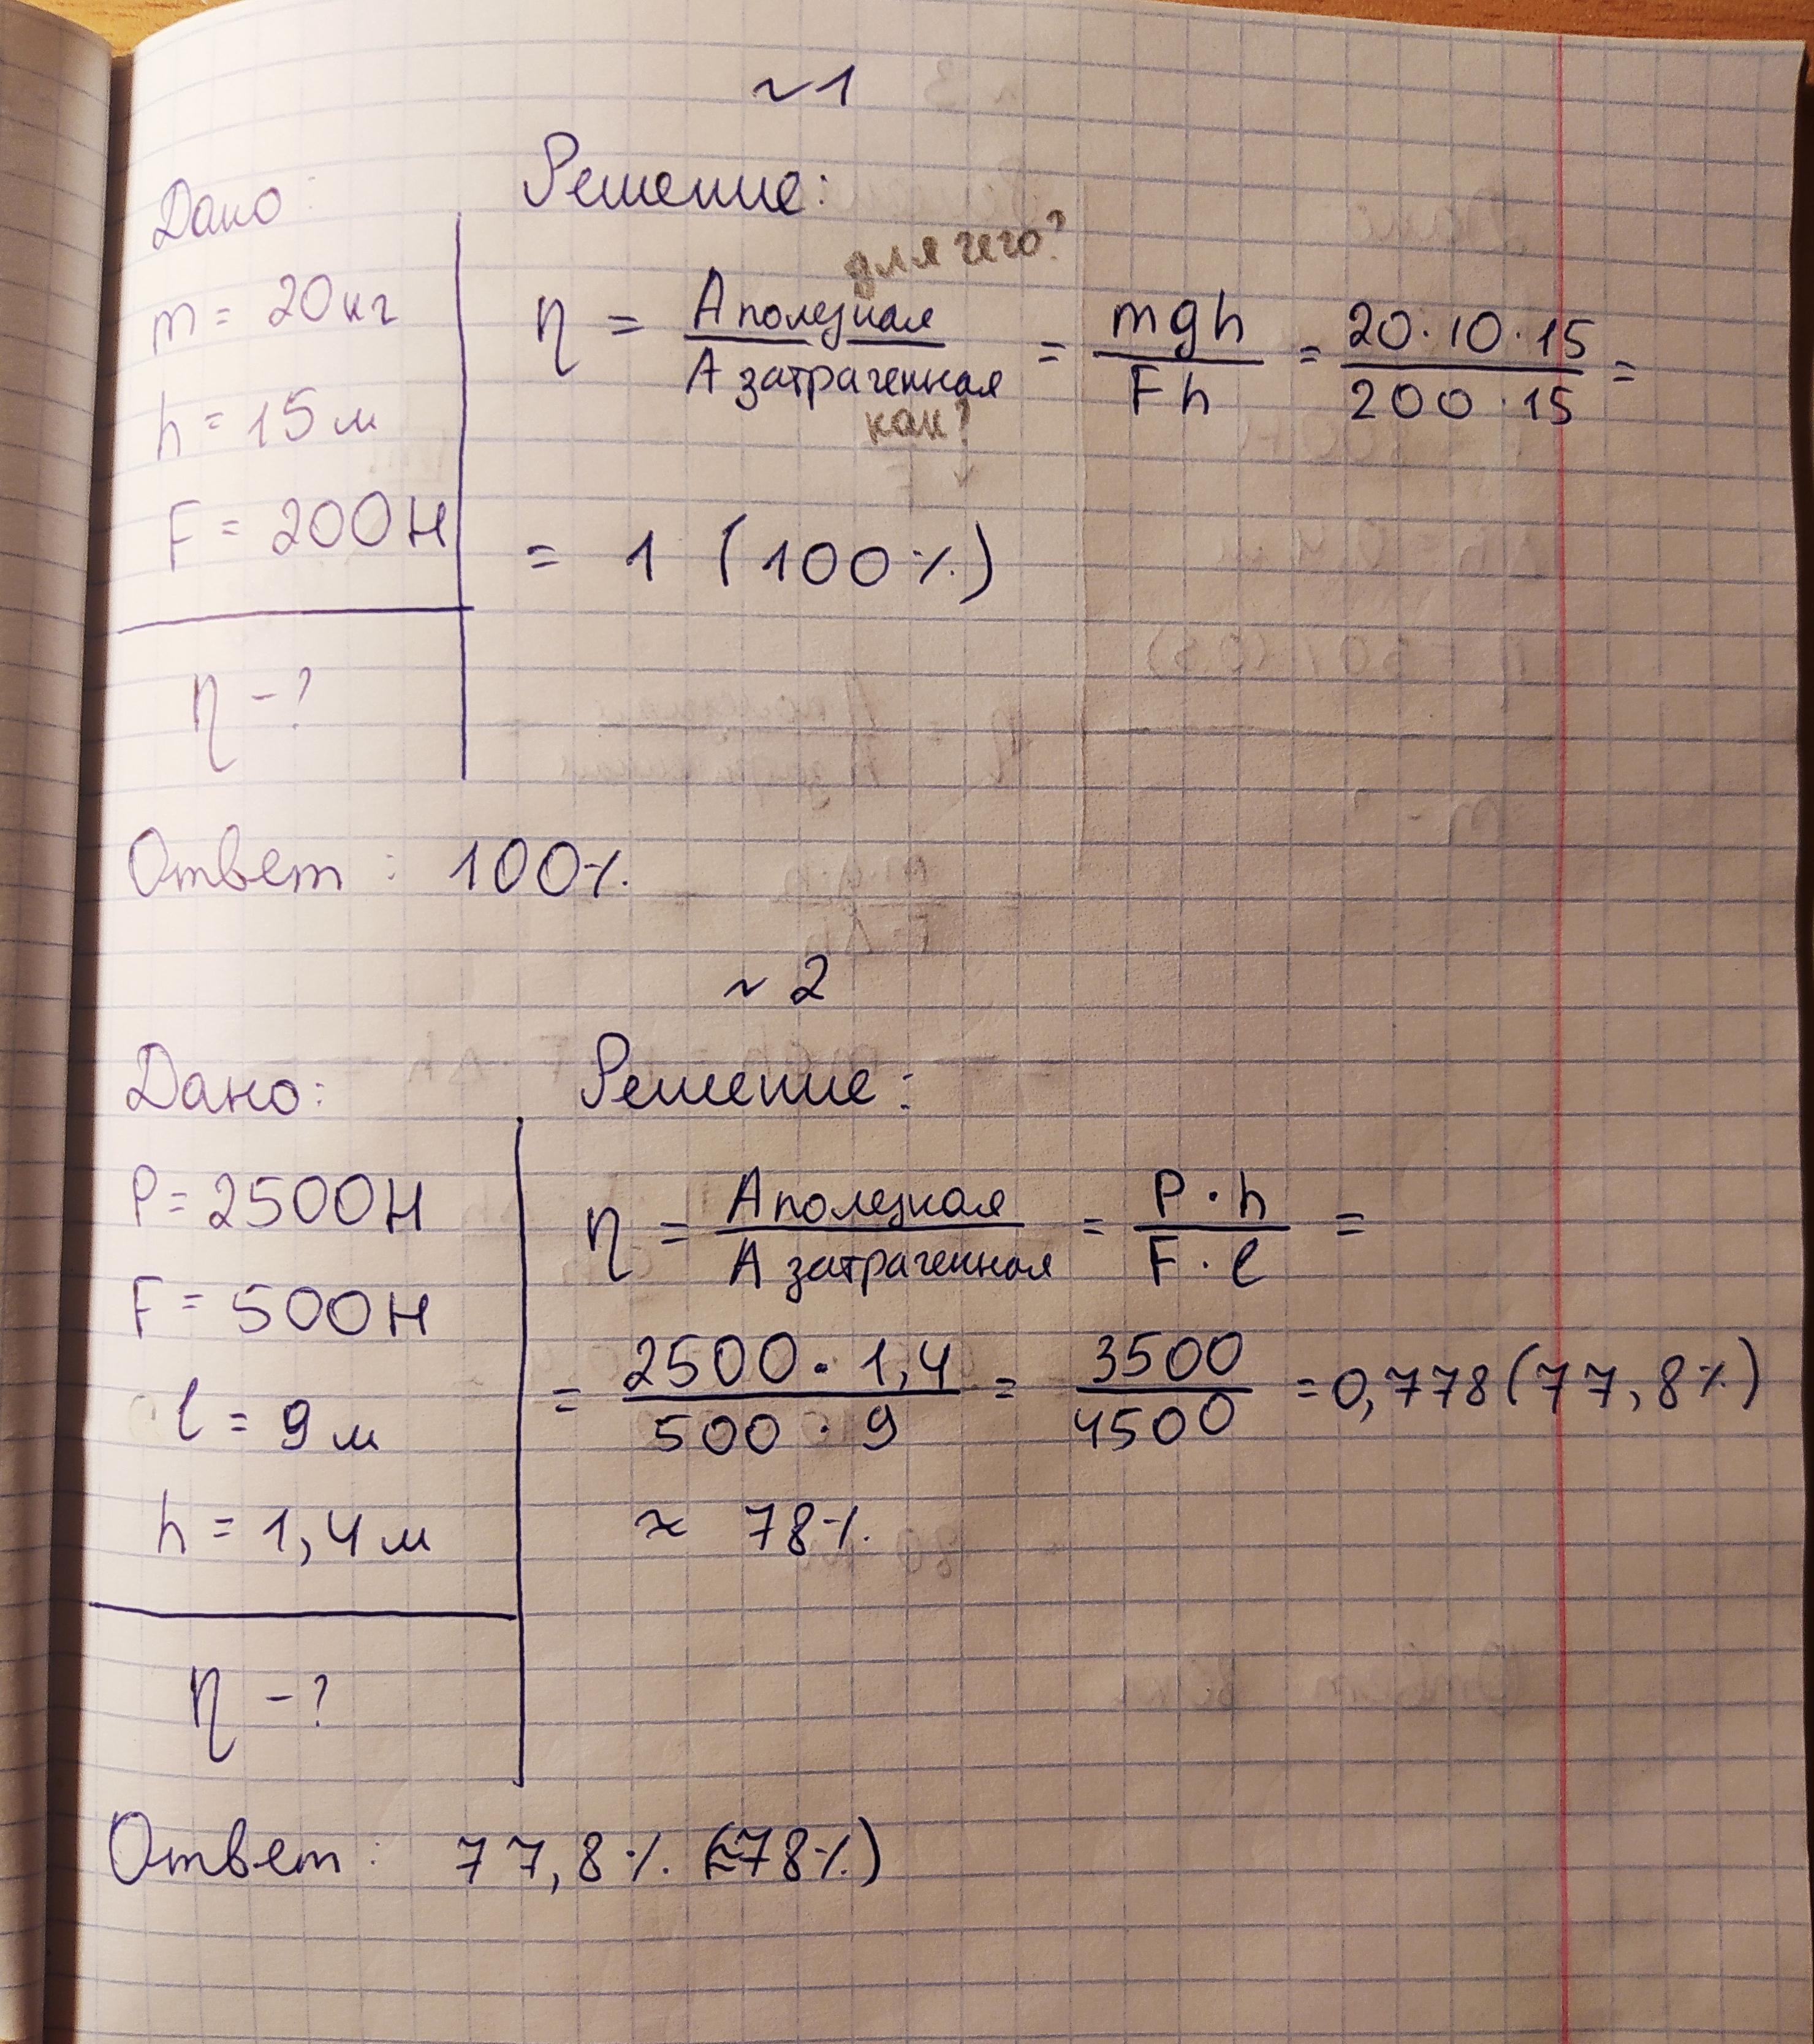 ~1
Дано:
m = 20кг
h = 15м
F = 200Н
η - ?
Решение:
для чего?
η = Aполезная / Aзатраченная = mgh / Fh = 20·10·15 / 200·15 =
как?
F
= 1 (100%)
Ответ: 100%.
~2
Дано:
P = 2500Н
F = 500Н
l = 9м
h = 1,4м
η - ?
Решение:
η = Aполезная / Aзатраченная = P·h / F·l =
= 2500·1,4 / 500·9 = 3500 / 4500 = 0,778 (77,8%)
≈ 78%.
Ответ: 77,8%. (≈78%)